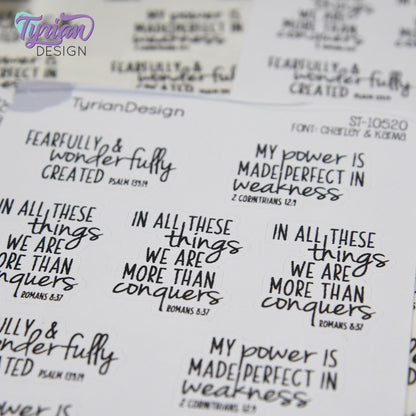 Tyrian
DESIGN
MY power is
MADE PERFECT IN
weakness
FEARFULLY &
wonderfully
CREATED PSALM 139:14
TyrianDesign
ST-10520
FONT: Charley & Karwa
FEARFULLY &
wonderfully
CREATED PSALM 139:14
MY power is
MADE PERFECT IN
weakness
2 CORINTHIANS 12:9
IN ALL THESE
things
WE ARE
MORE THAN
conquers
ROMANS 8:37
IN ALL THESE
things
WE ARE
MORE THAN
conquers
ROMANS 8:37
IN ALL THESE
things
WE ARE
MORE THAN
conquers
ROMANS 8:37
FEARFULLY &
wonderfully
CREATED PSALM 139:14
MY power is
MADE PERFECT IN
weakness
2 CORINTHIANS 12:9
power is
IN ALL THESE